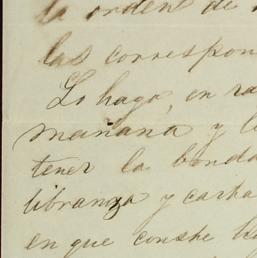 la orden de
las correspon
Lo hago, en ra
mañana y l
tener la bonda
libranza y carta
en que conste h